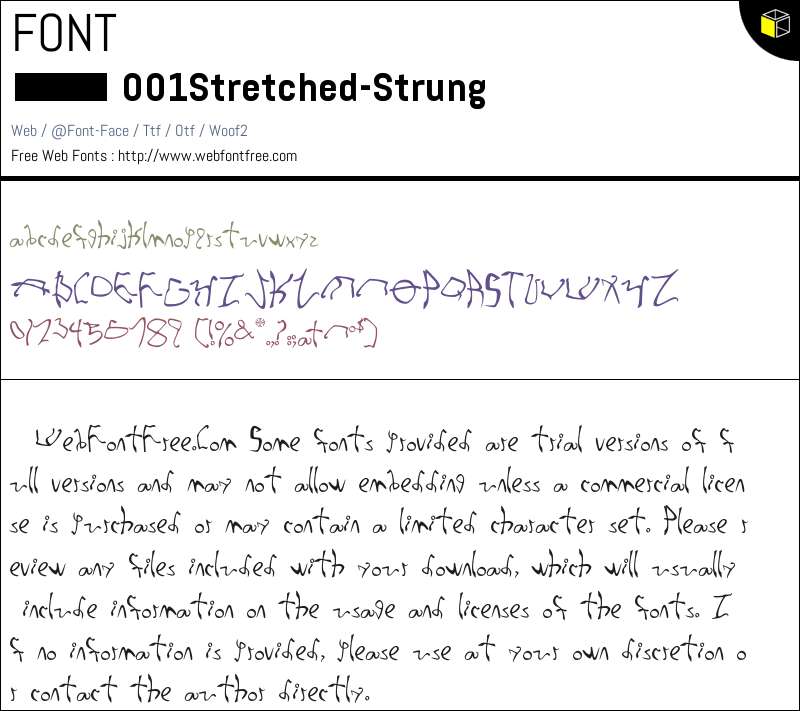 FONT
001Stretched-Strung
Web / @Font-Face / Ttf / Otf / Woof2
Free Web Fonts : http://www.webfontfree.com
abcdefghijklmnopqrstuvwxyz
ABCDEFGHIJKLMNOPQRSTUVWXYZ
0123456789 (!%&*,?.;;at
WebFontFree.Com Some fonts provided are trial versions of f
ull versions and may not allow embedding unless a commercial licen
se is purchased or may contain a limited character set. Please r
eview any files included with your download, which will usually
include information on the usage and licenses of the fonts. I
f no information is provided, please use at your own discretion o
r contact the author directly.